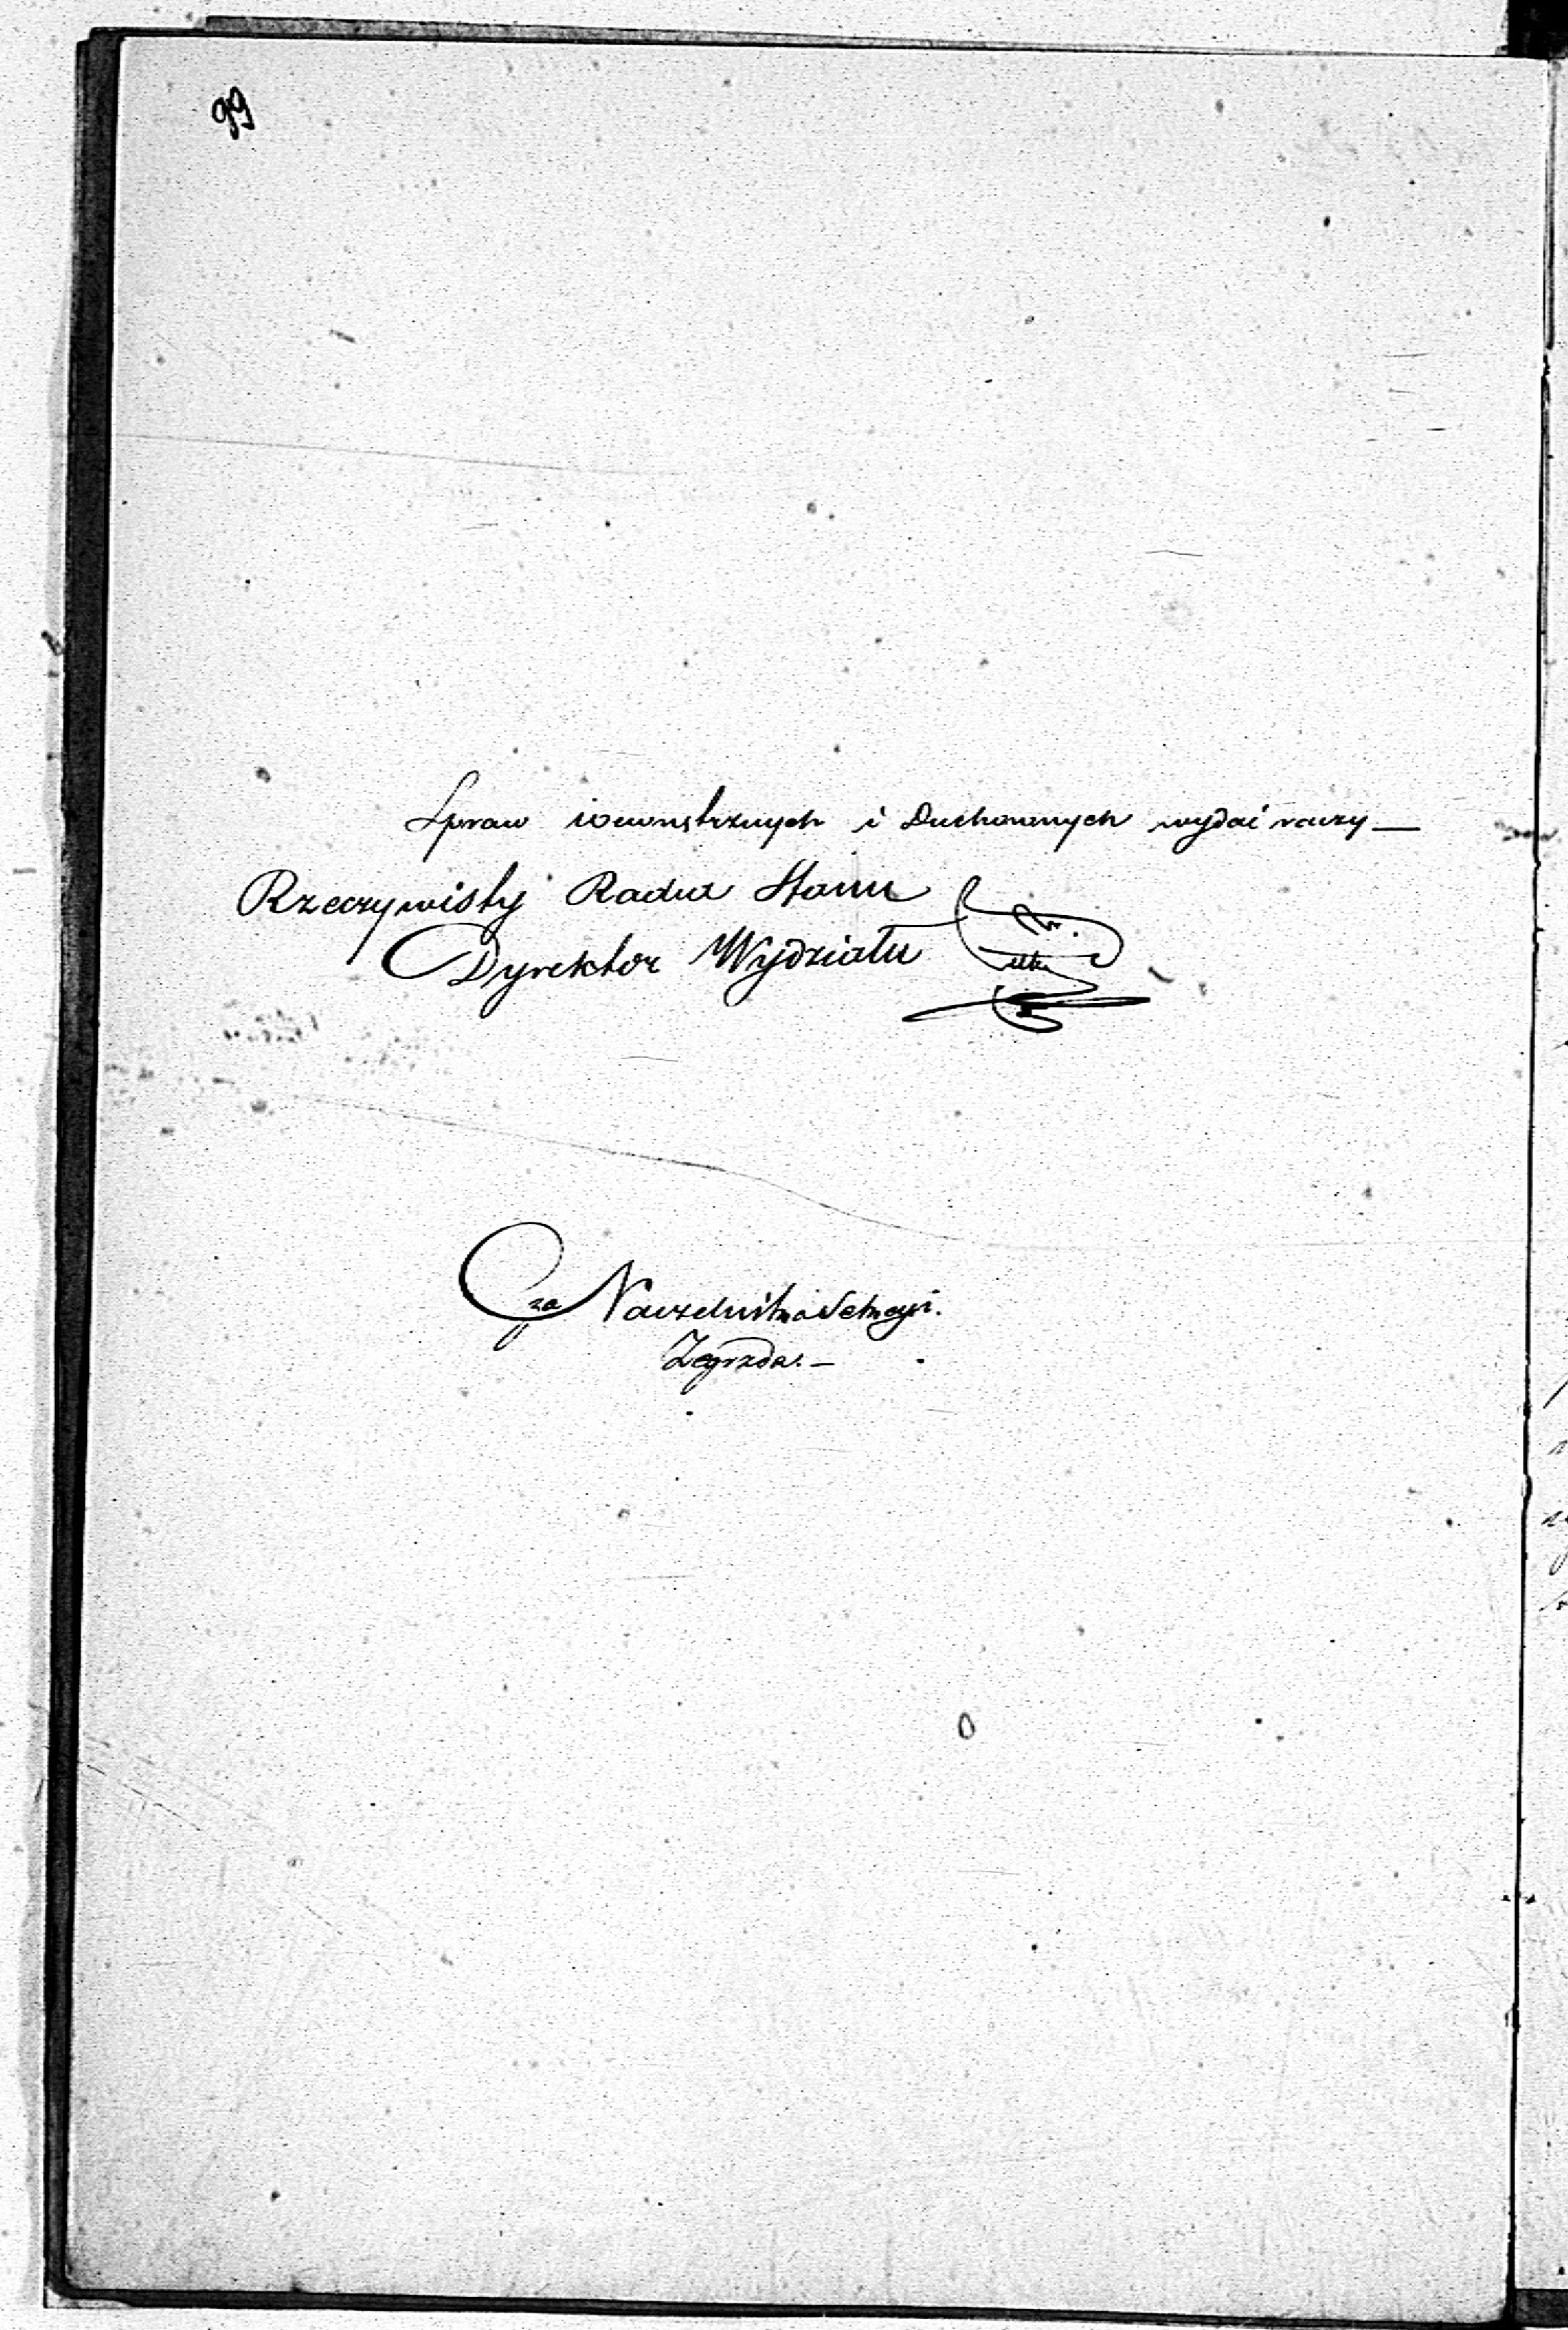 99
Spraw wewnętrznych i Duchownych wydać raczy —
Rzeczywisty Radca Stanu
Dyrektor Wydziału
za Naczelnika Sekcyi.
Zegrzda. —